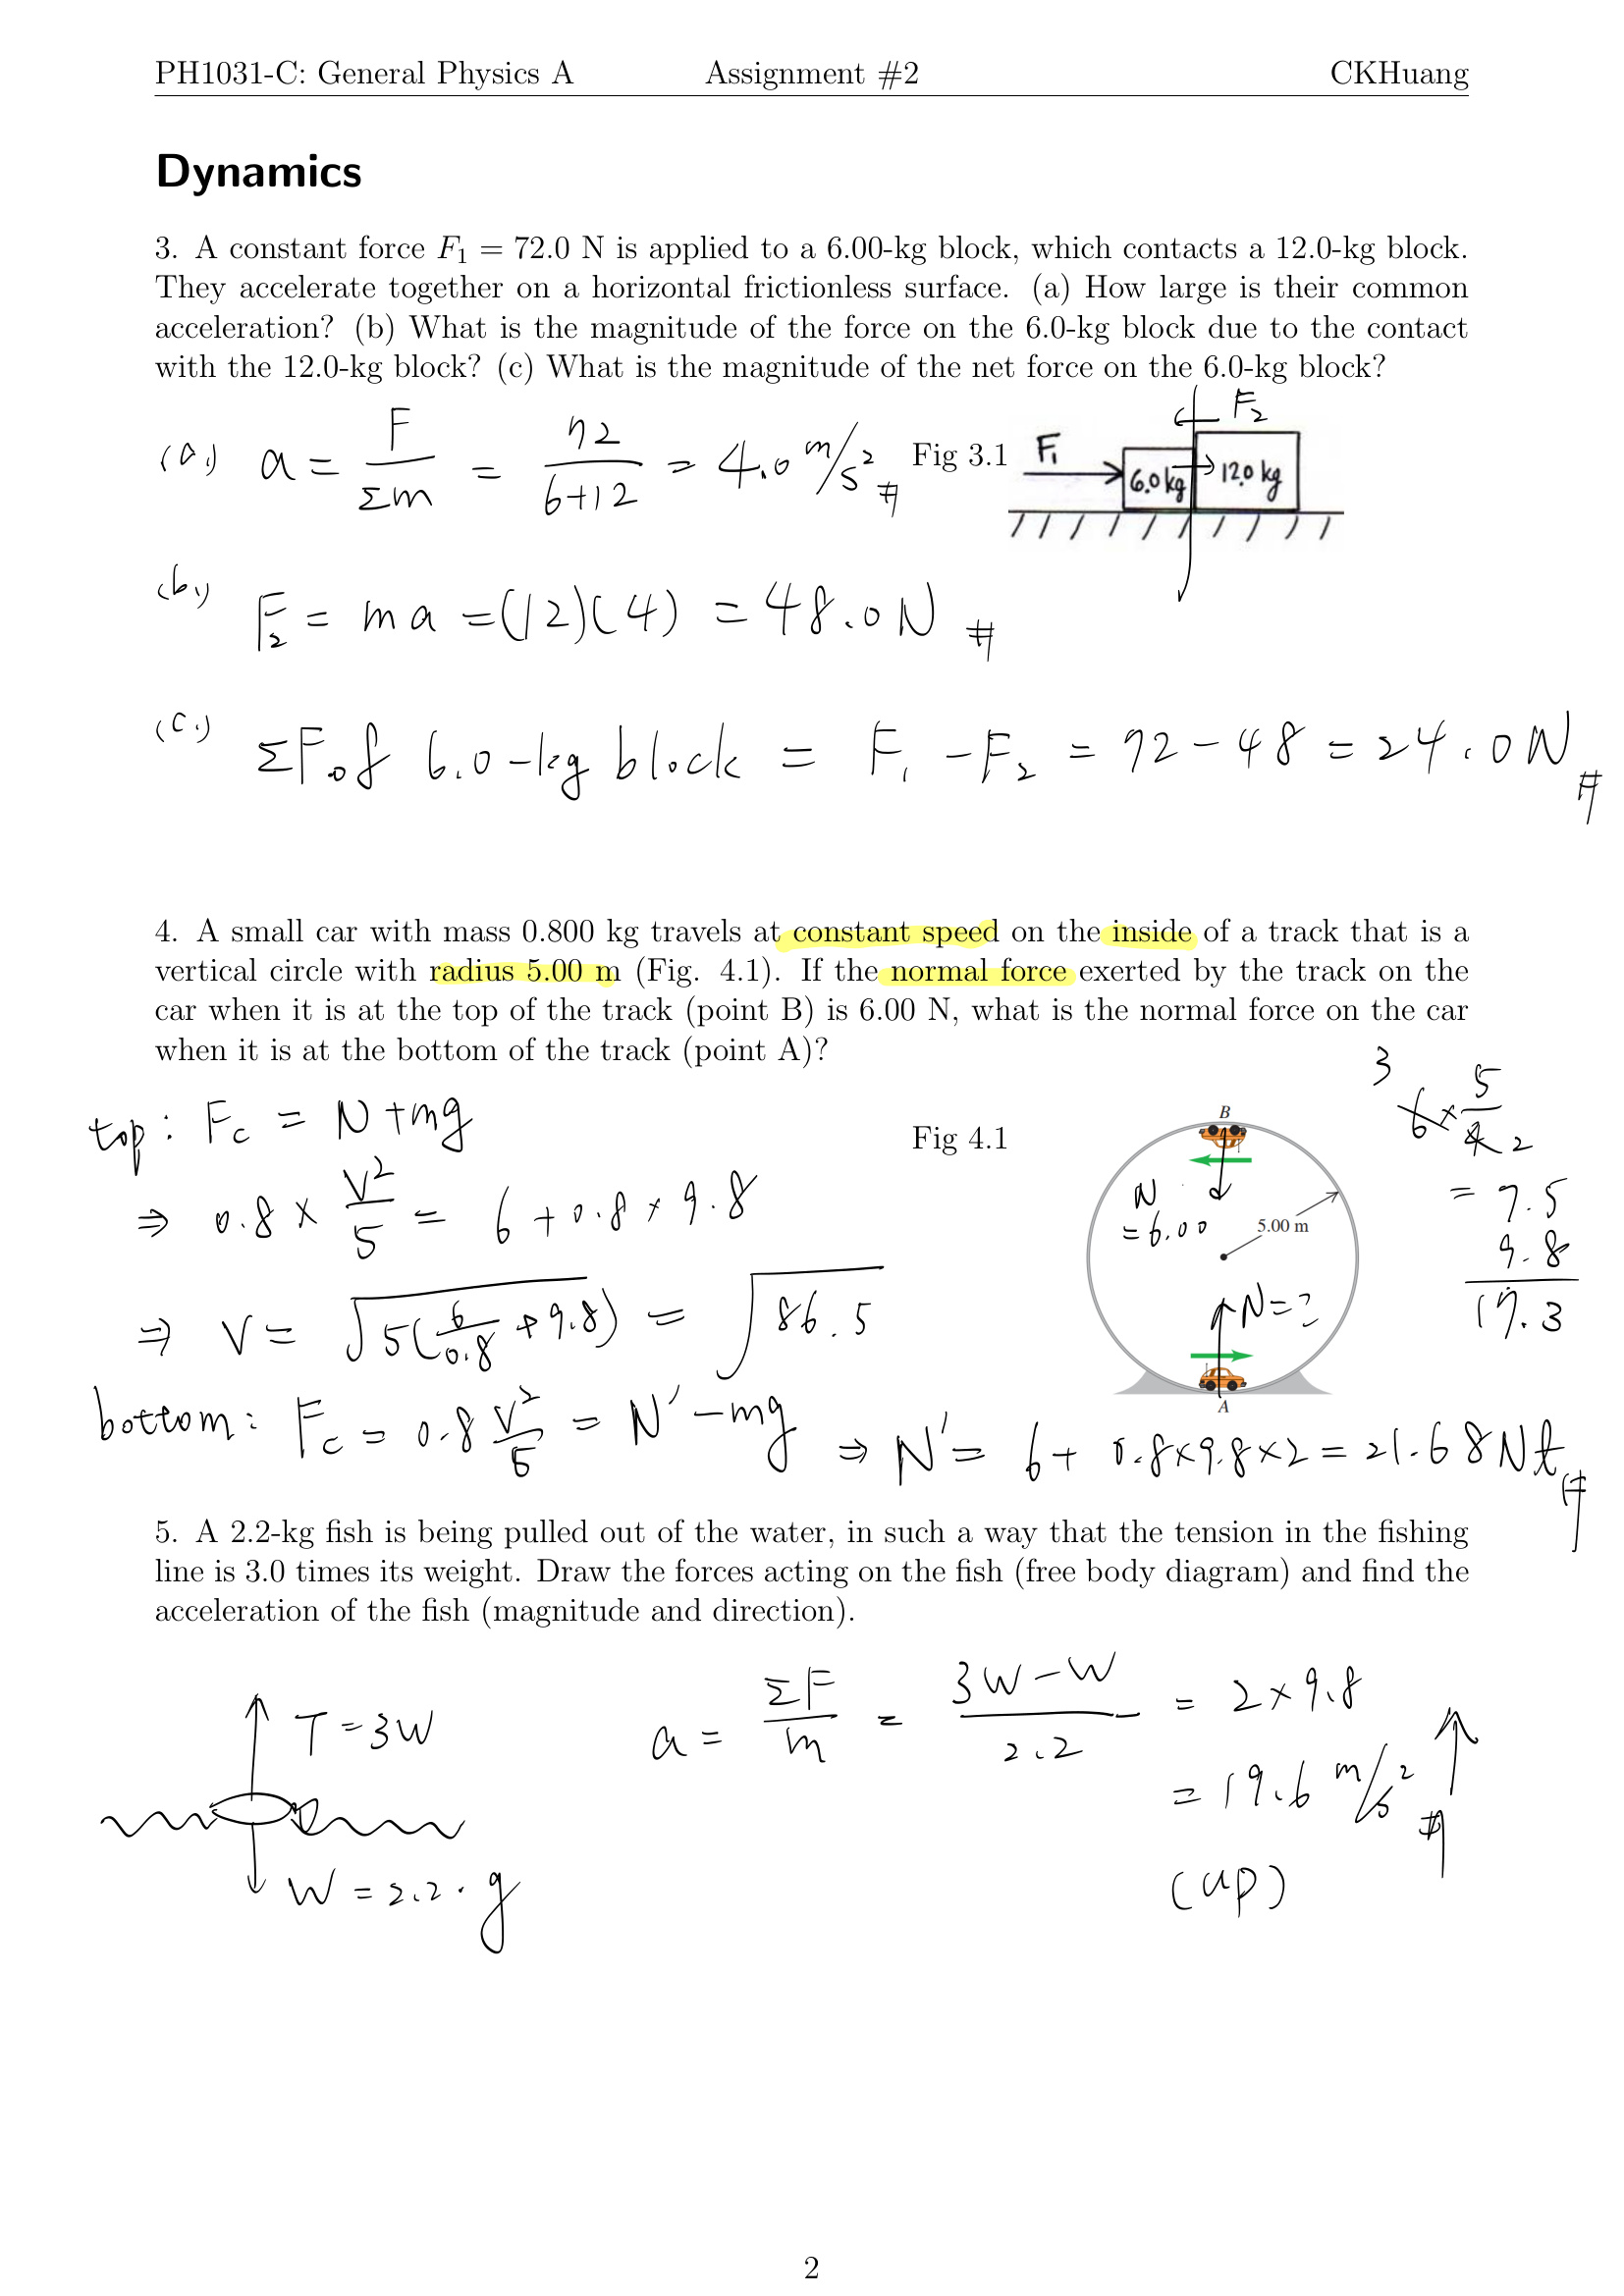 PH1031-C: General Physics A Assignment #2 CKHuang
Dynamics
3. A constant force F₁ = 72.0 N is applied to a 6.00-kg block, which contacts a 12.0-kg block.
They accelerate together on a horizontal frictionless surface. (a) How large is their common
acceleration? (b) What is the magnitude of the force on the 6.0-kg block due to the contact
with the 12.0-kg block? (c) What is the magnitude of the net force on the 6.0-kg block?
(a.) a = F/Σm = 72/(6+12) = 4.0 m/s² #
Fig 3.1
F₁
F₂
6.0 kg
12.0 kg
(b.) F₂ = ma = (12)(4) = 48.0 N #
(c.) ΣF of 6.0-kg block = F₁ - F₂ = 72 - 48 = 24.0 N #
4. A small car with mass 0.800 kg travels at constant speed on the inside of a track that is a
vertical circle with radius 5.00 m (Fig. 4.1). If the normal force exerted by the track on the
car when it is at the top of the track (point B) is 6.00 N, what is the normal force on the car
when it is at the bottom of the track (point A)?
top: Fc = N + mg
⇒ 0.8 × V²/5 = 6 + 0.8 × 9.8
⇒ V = √(5(6/0.8 + 9.8)) = √86.5
Fig 4.1
B
N = 6.00
5.00 m
N = ?
A
3
6 × 5/4 2
= 7.5
9.8
17.3
bottom: Fc = 0.8 V²/5 = N' - mg ⇒ N' = 6 + 0.8×9.8×2 = 21.68 Nt #
5. A 2.2-kg fish is being pulled out of the water, in such a way that the tension in the fishing
line is 3.0 times its weight. Draw the forces acting on the fish (free body diagram) and find the
acceleration of the fish (magnitude and direction).
T = 3W
W = 2.2 · g
a = ΣF/m = (3W - W)/2.2 = 2 × 9.8
= 19.6 m/s² ↑ #
(up)
2